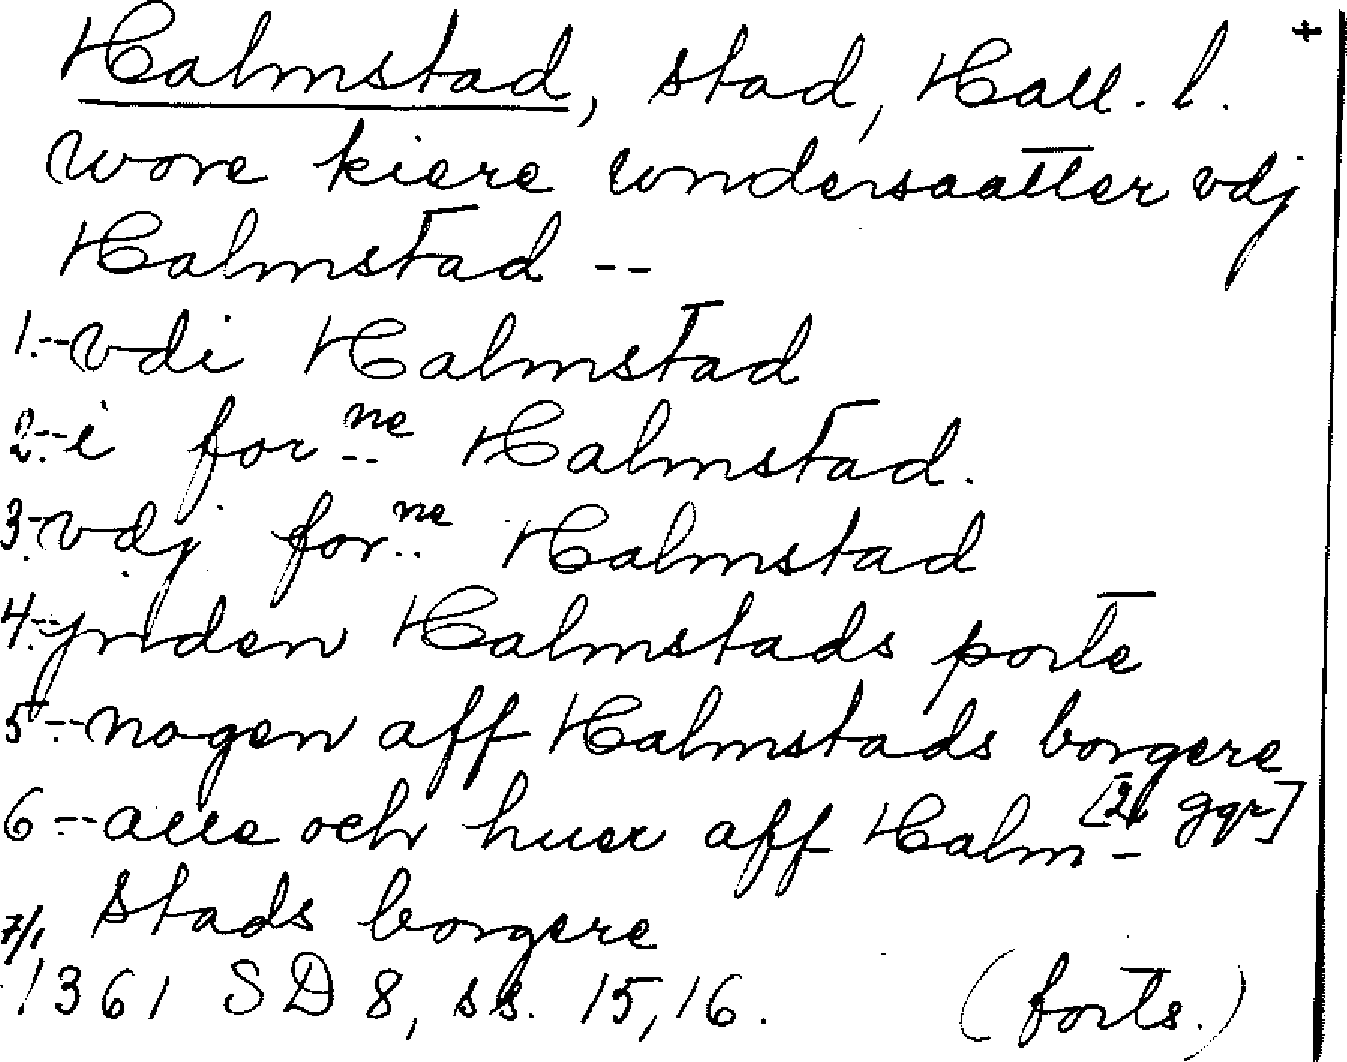 Halmstad, stad, Hall. l. +
wore kiere wndersaatter vdj
Halmstad --
1.-- vdi Halmstad
2.-- i for ne Halmstad.
3.-- vdj for ne Halmstad
4.-- ynden Halmstads porte
5.-- nogen aff Halmstads borgere
[2 ggr]
6.-- alle och huer aff Halm-
stads borgere
7/1
1361 SD 8, ss. 15, 16. (forts.)